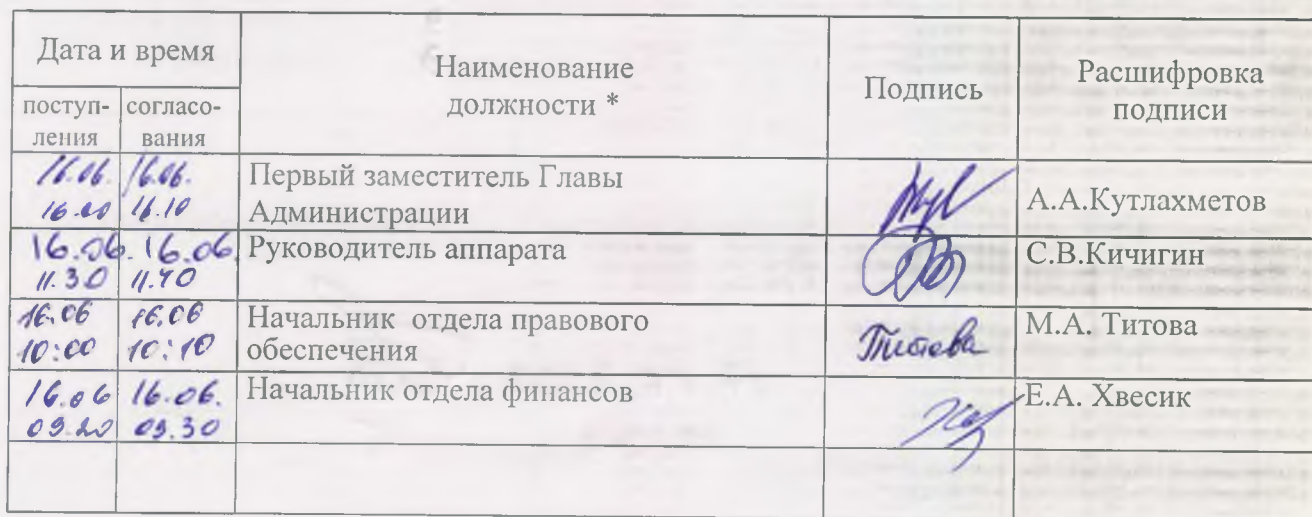 Дата и время
Наименование
должности *
Подпись
Расшифровка
подписи
поступ-
ления
согласо-
вания
16.06. 16.06.
16.10
Первый заместитель Главы
Администрации
А.А.Кутлахметов
16.06. 16.06.
11.30 11.40
Руководитель аппарата
С.В.Кичигин
16.06 16.06
10:00 10:10
Начальник отдела правового
обеспечения
Титова
М.А. Титова
16.06 16.06.
09.20 09.30
Начальник отдела финансов
Е.А. Хвесик